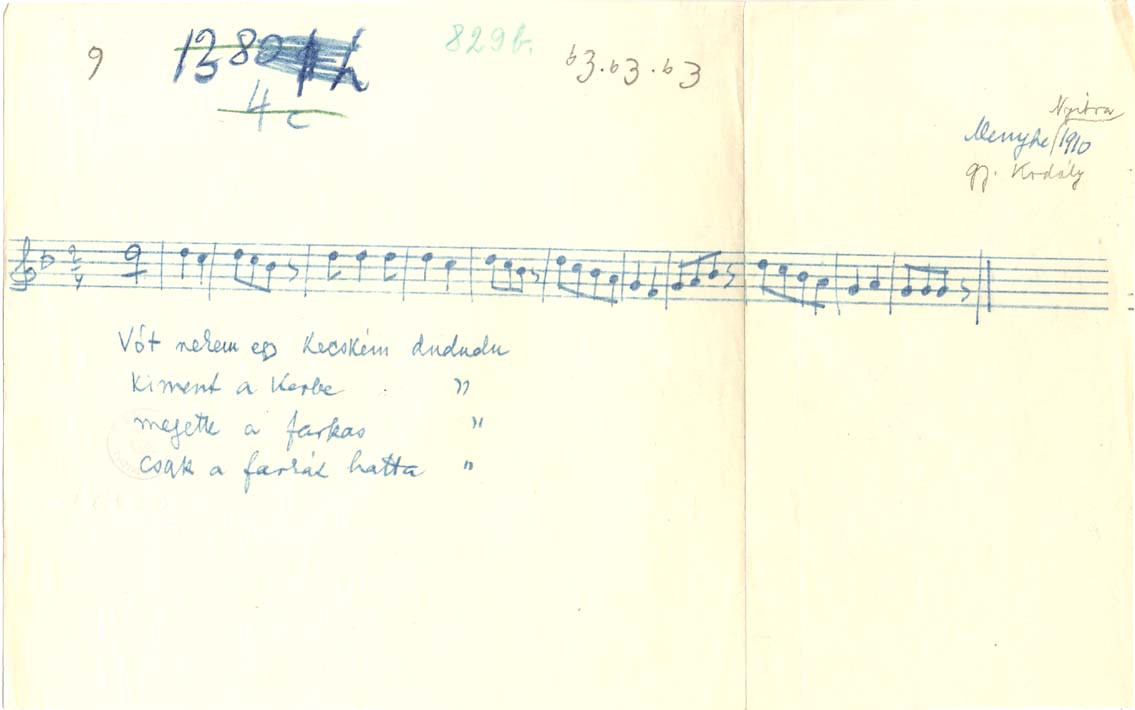 9
1380
4c
829b.
b3.b3.b3
Nyitra
Menyhe/1910
gy. Kodály
2/4
Vót nekem egy kecském dududu
kiment a kerbe "
megette a farkas "
csak a farkát hatta "